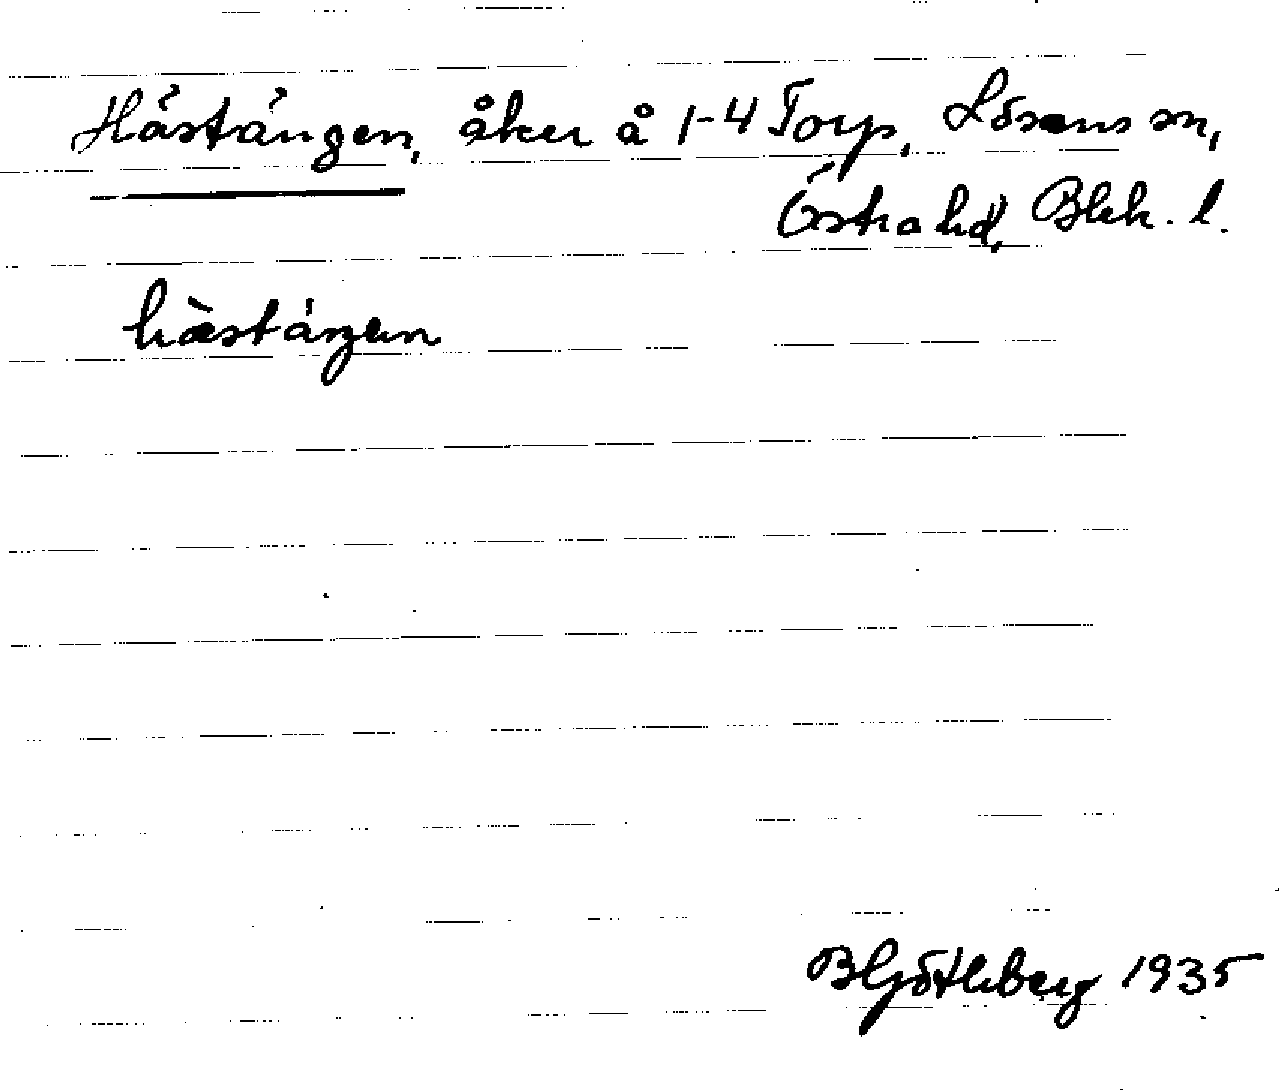 Hästängen, åker å 1-4 Torp, Lösens sn,
Östra hd, Blek. l.
hàstáŋen
B Götlberg 1935